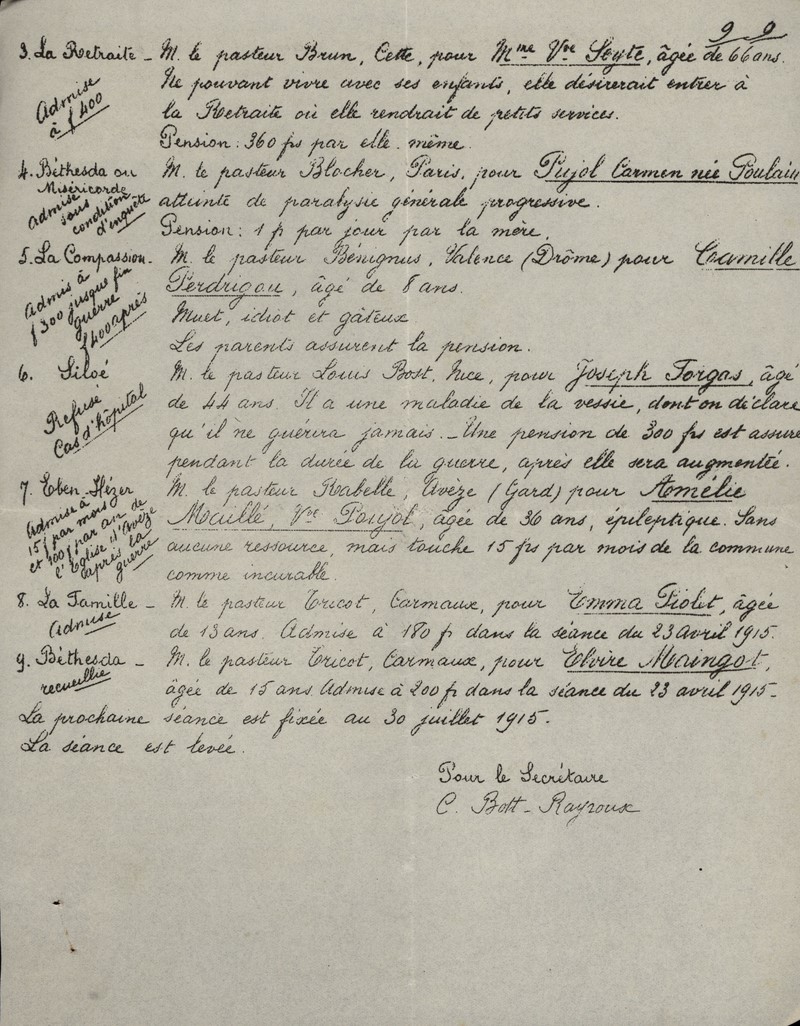 99
3. La Retraite - M. le pasteur Brun, Cette, pour Mme Vve Seyte, âgée de 66 ans.
Admise à f 400
Ne pouvant vivre avec ses enfants, elle désirerait entrer à
la Retraite où elle rendrait de petits services.
Pension : 360 frs par elle-même.
4. Béthesda ou Miséricorde
Admise sous condition d'enquête
M. le pasteur Blocher, Paris, pour Pujol Carmen née Poulain
atteinte de paralysie générale progressive.
Pension : 1 f par jour par la mère.
5. La Compassion - M. le pasteur Bénignus, Valence (Drôme) pour Camille
Admis à f 300 jusque fin guerre f 400 après
Perdrigou, âgé de 8 ans.
Muet, idiot et gâteux
Les parents assurent la pension.
6. Siloé M. le pasteur Louis Bost, Nice, pour Joseph Forgas, âgé
Refusé Cas d'hôpital
de 44 ans. Il a une maladie de la vessie, dont on déclare
qu'il ne guérira jamais. - Une pension de 300 frs est assure
pendant la durée de la guerre, après elle sera augmentée.
7. Eben-Hézer M. le pasteur Rabelle, Avèze (Gard) pour Amélie
Admise à 15 f par mois et 100 f par an de l'Eglise d'Avèze après la guerre
Maullé, Vve Poujol, âgée de 36 ans, épileptique. Sans
aucune ressource, mais touche 15 frs par mois de la commune
comme incurable.
8. La Famille - M. le pasteur Tricot, Carmaux, pour Emma Piolet, âgée
Admise
de 13 ans. Admise à 180 f dans la séance du 23 avril 1915.
9. Béthesda - M. le pasteur Tricot, Carmaux, pour Elvire Maingot,
recueillie
âgée de 15 ans. Admise à 200 f dans la séance du 23 avril 1915.
La prochaine séance est fixée au 30 juillet 1915.
La séance est levée.
Pour le Secrétaire
C. Bott-Rayroux